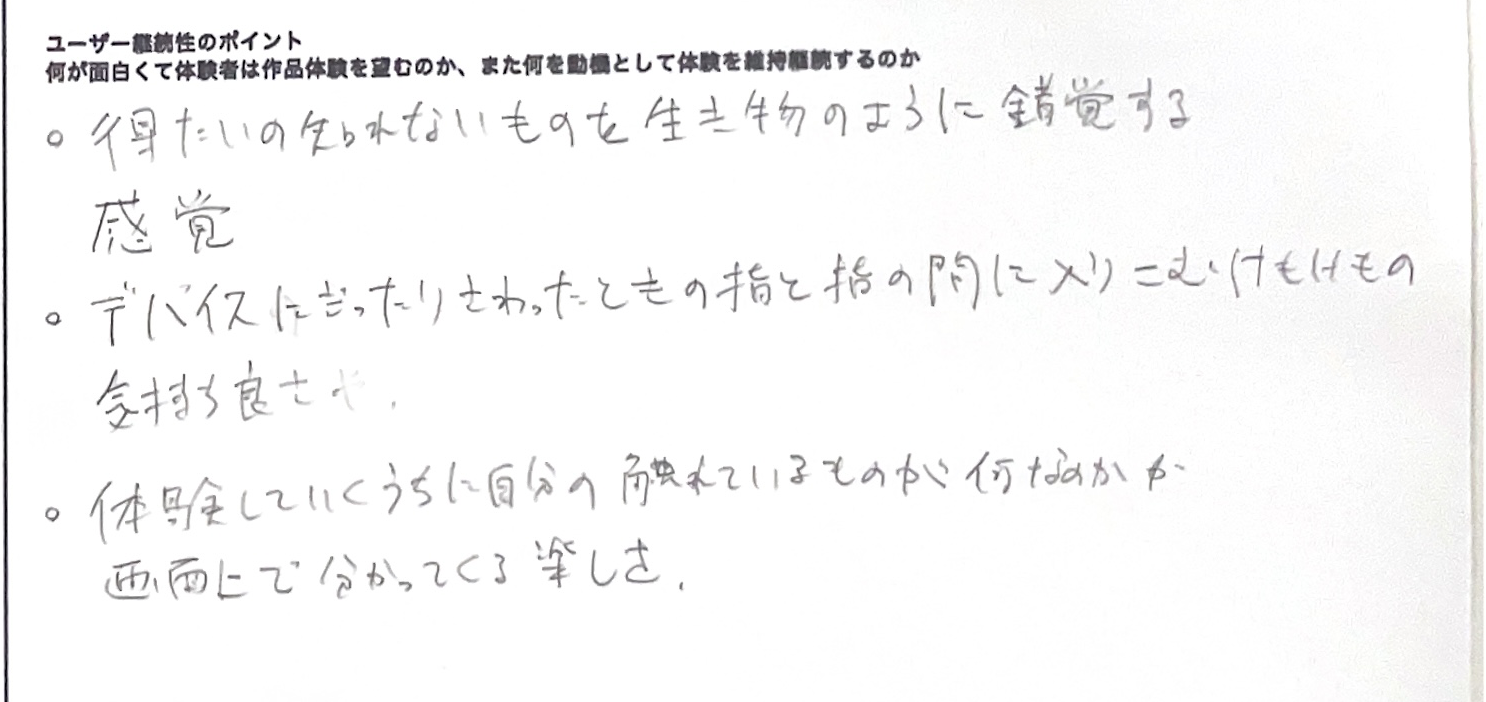 ユーザー継続性のポイント
何が面白くて体験者は作品体験を望むのか、また何を動機として体験を維持継続するのか
○ 得たいの知られないものを生き物のように錯覚する
感覚
○ デバイスにさったりさわったときの指と指の間に入りこむけもけもの
気持ち良さや.
○ 体験していくうちに自分の触れているものが何なのかが
画面上で分かってくる楽しさ.